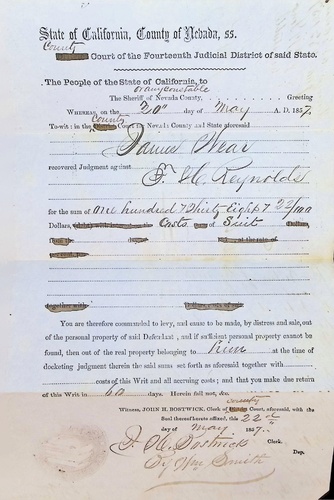 State of California, County of Nevada, ss.
County
Court of the Fourteenth Judicial District of said State.
The People of the State of California, to
or any constable
The Sheriff of Nevada County, Greeting
WHEREAS, on the 20" day of May A. D. 1857,
County
To-wit: in the Court in Nevada County and State aforesaid
James Wear
recovered Judgment against
Reynolds
for the sum of One hundred & Thirty Eight & 22/100
Dollars, with Costs of Suit Dollars,
together with
You are therefore commanded to levy, and cause to be made, by distress and sale, out
of the personal property of said Defendant, and if sufficient personal property cannot be
found, then out of the real property belonging to him at the time of
docketing judgment therein the said sums set forth as aforesaid together with
costs of this Writ and all accruing costs; and that you make due return
of this Writ in 60 days. Herein fail not, &c.
county
WITNESS, JOHN H. BOSTWICK, Clerk of Court, aforesaid, with the
Seal thereof hereto affixed, this 22nd
day of May 1857.
J. H. Bostwick Clerk.
By Wm Smith Dep.